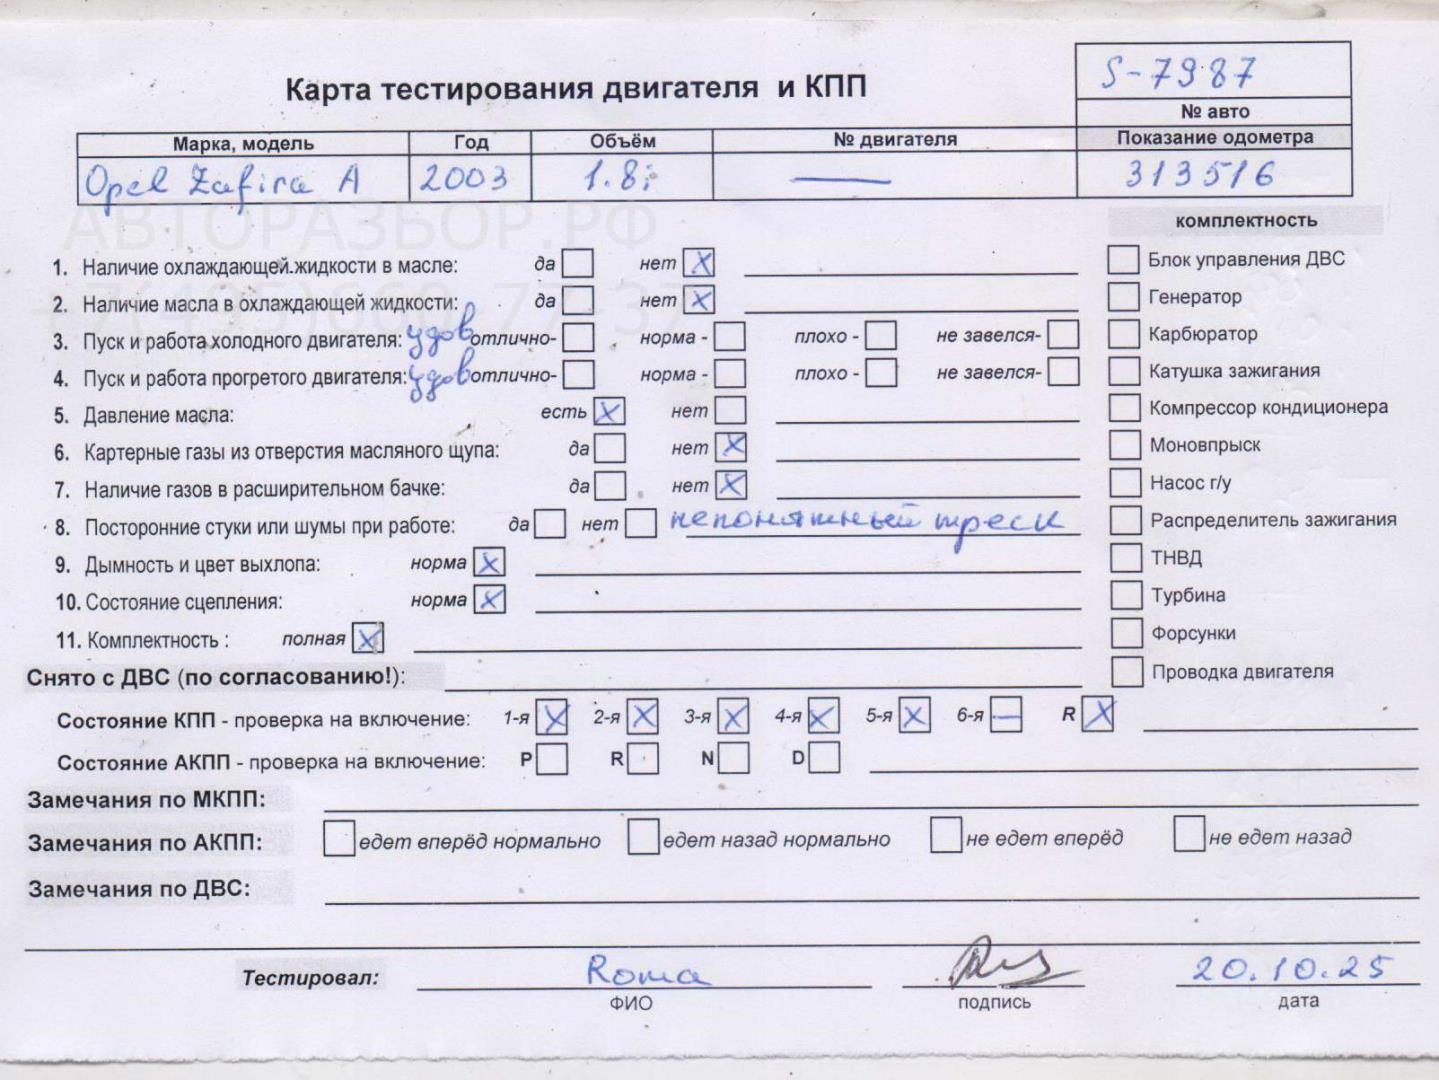 S-7987
Карта тестирования двигателя и КПП
№ авто
Марка, модель Год Объём № двигателя Показание одометра
Opel Zafira A 2003 1.8i — 313516
АВТОРАЗБОР.РФ
комплектность
1. Наличие охлаждающей жидкости в масле: да нет X
Блок управления ДВС
+7(495)660-77-37
2. Наличие масла в охлаждающей жидкости: да нет X
Генератор
3. Пуск и работа холодного двигателя: удов отлично- норма - плохо - не завелся-
Карбюратор
4. Пуск и работа прогретого двигателя: удов отлично- норма - плохо - не завелся-
Катушка зажигания
5. Давление масла: есть X нет
Компрессор кондиционера
6. Картерные газы из отверстия масляного щупа: да нет X
Моновпрыск
7. Наличие газов в расширительном бачке: да нет X
Насос г/у
8. Посторонние стуки или шумы при работе: да нет непонятный треск
Распределитель зажигания
9. Дымность и цвет выхлопа: норма X
ТНВД
10. Состояние сцепления: норма X
Турбина
11. Комплектность : полная X
Форсунки
Снято с ДВС (по согласованию!):
Проводка двигателя
Состояние КПП - проверка на включение: 1-я X 2-я X 3-я X 4-я X 5-я X 6-я — R X
Состояние АКПП - проверка на включение: P R N D
Замечания по МКПП:
Замечания по АКПП: едет вперёд нормально едет назад нормально не едет вперёд не едет назад
Замечания по ДВС:
Тестировал: Roma 20.10.25
ФИО подпись дата